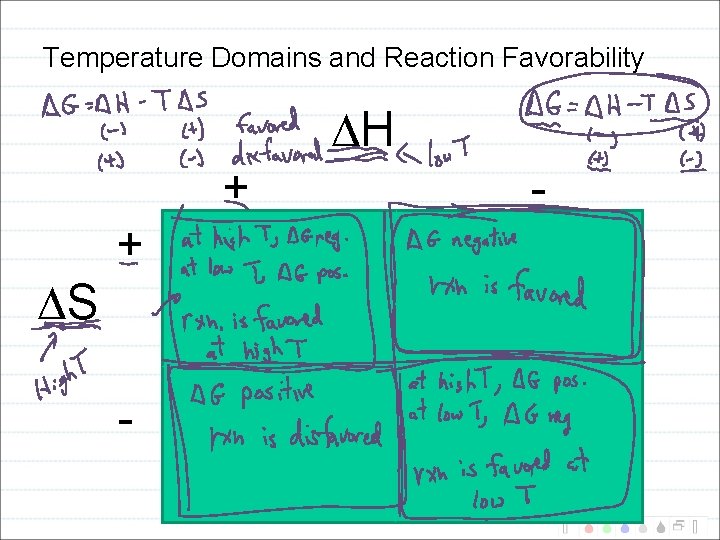 Temperature Domains and Reaction Favorability
ΔG = ΔH - TΔS
(-) (+) favored
(+) (-) disfavored
ΔH
< low T
ΔG = ΔH - TΔS
(-) (+)
(+) (-)
+ -
+
ΔS
High T
-
at high T, ΔG neg.
at low T, ΔG pos.
rxn. is favored
at high T
ΔG negative
rxn is favored
ΔG positive
rxn is disfavored
at high T, ΔG pos.
at low T, ΔG neg
rxn is favored at
low T